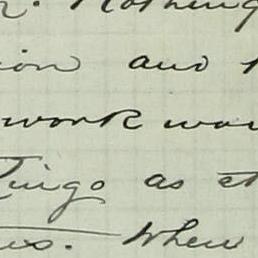 r. Nothing
ion and
work wa
Ringo as st
es. When